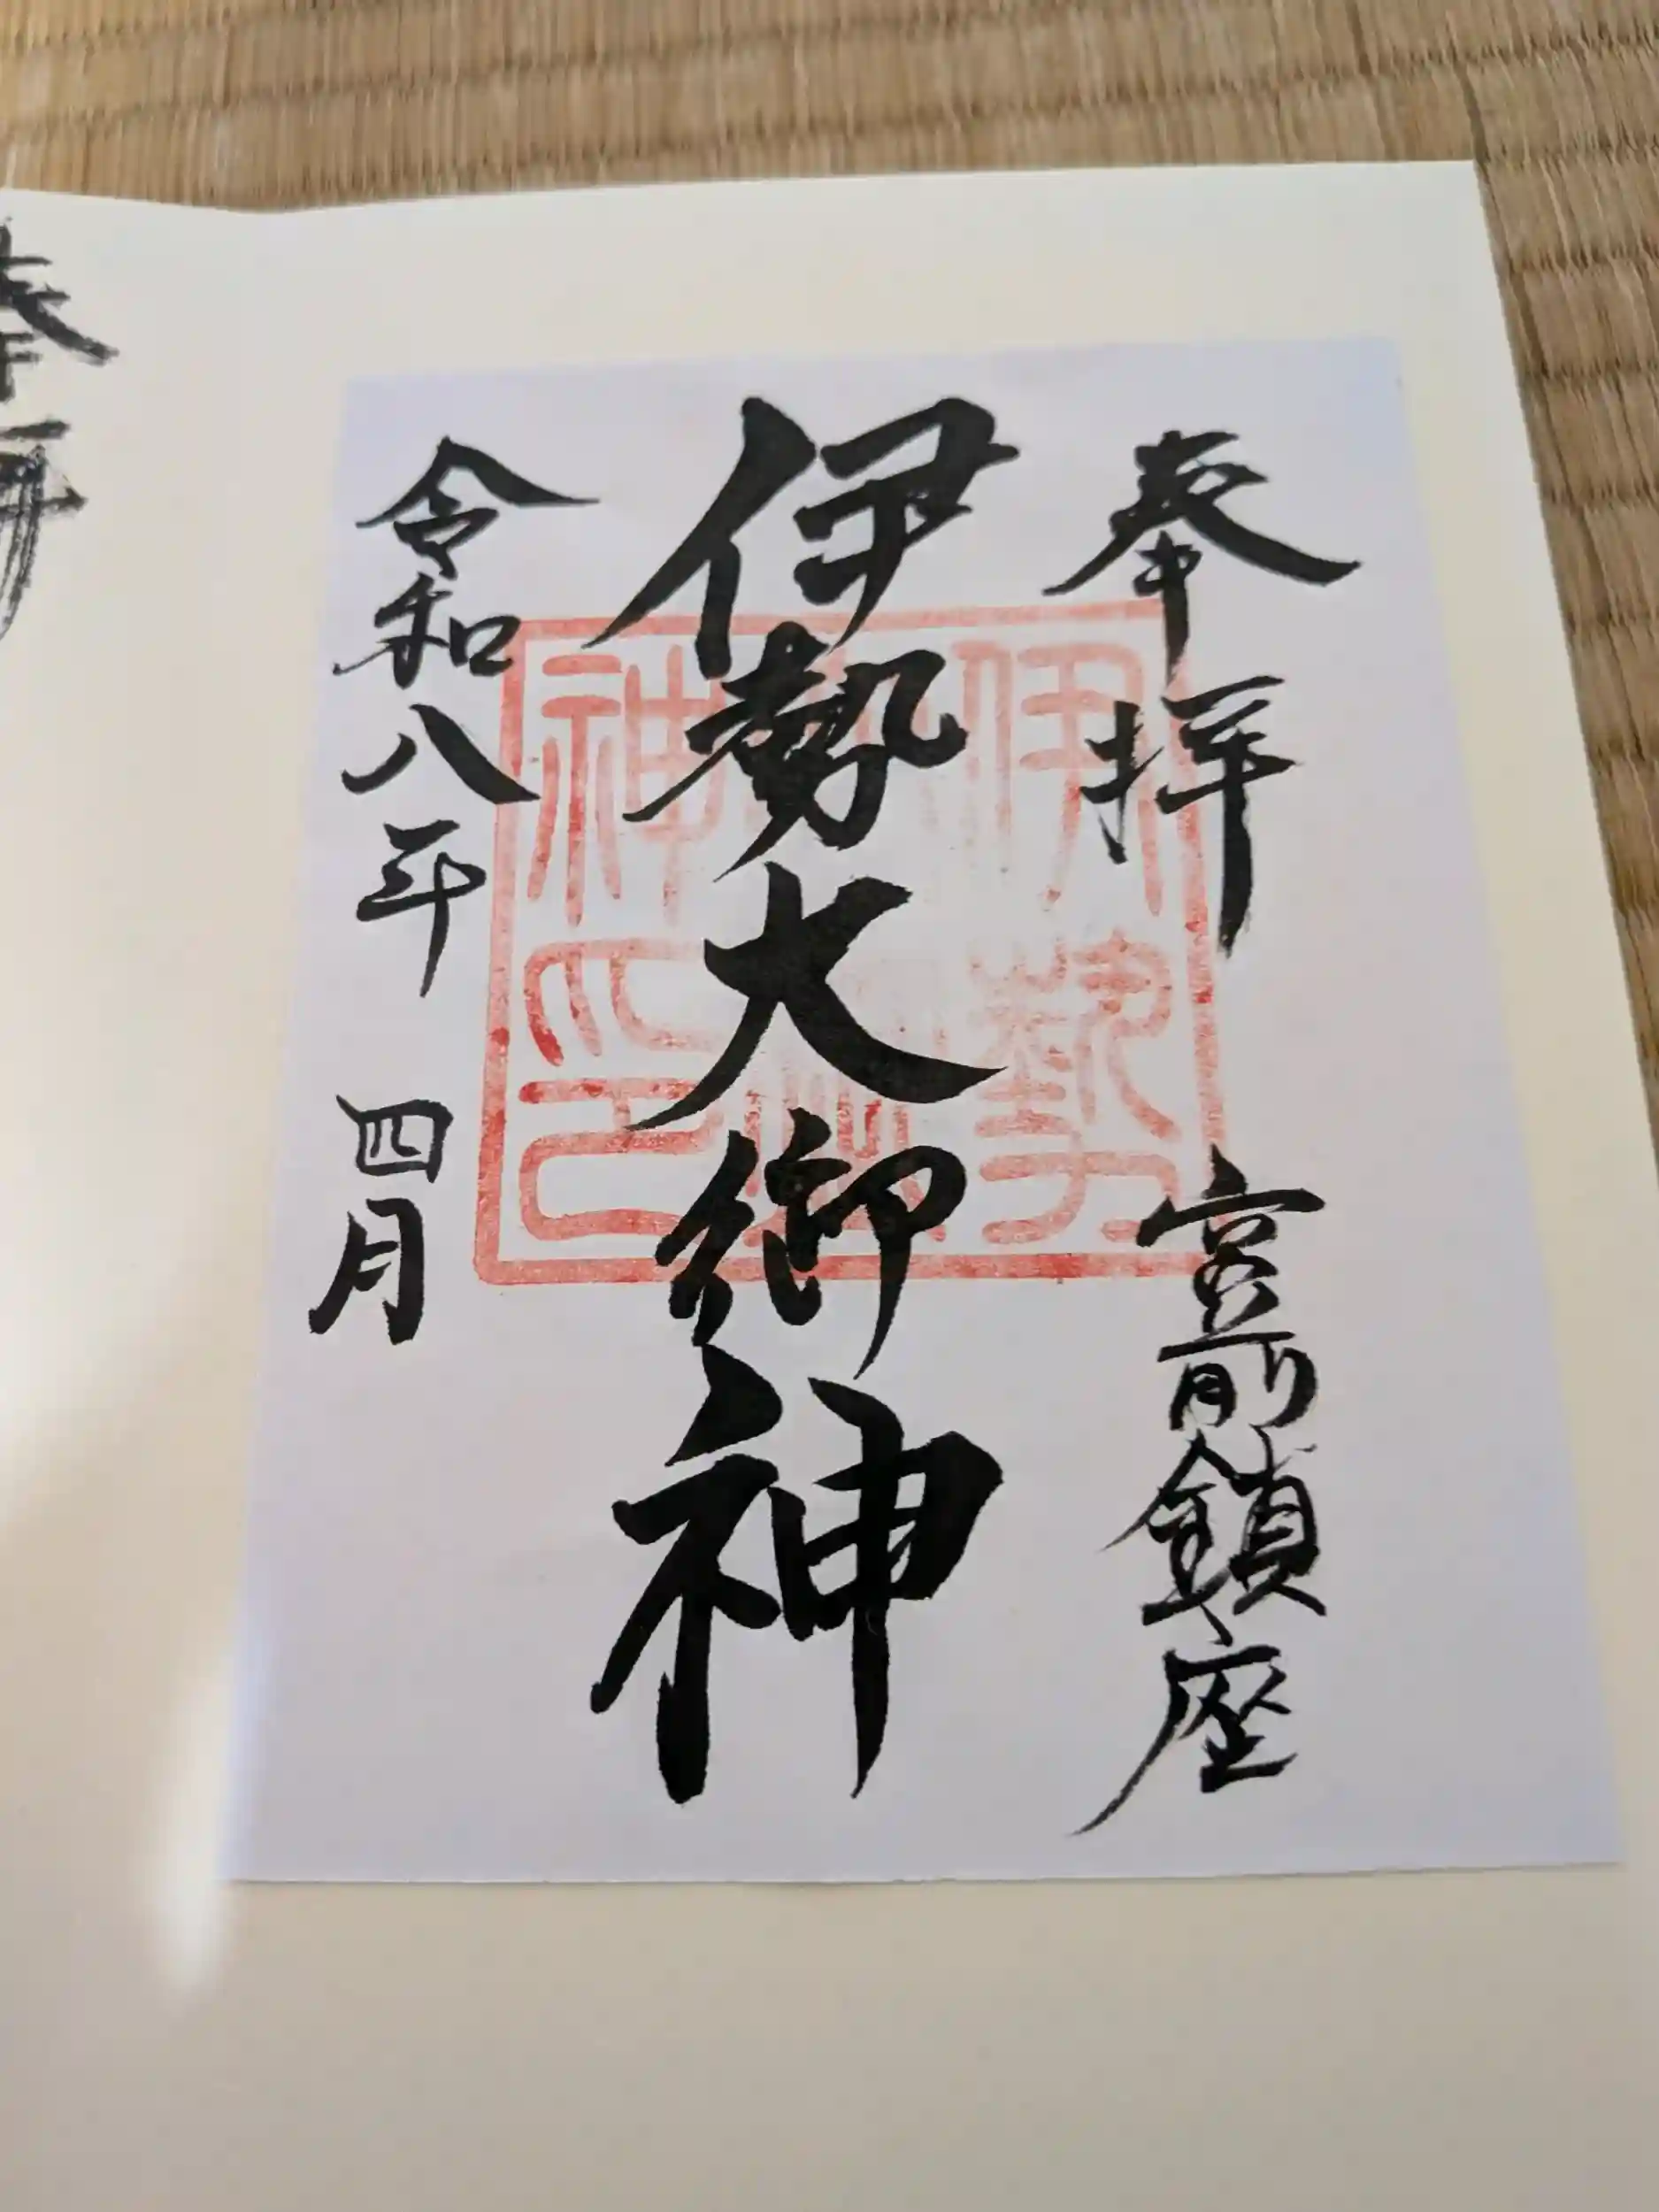 奉拝 宮前鎮座
伊勢大御神
令和八年 四月
伊勢
神印
奉拝